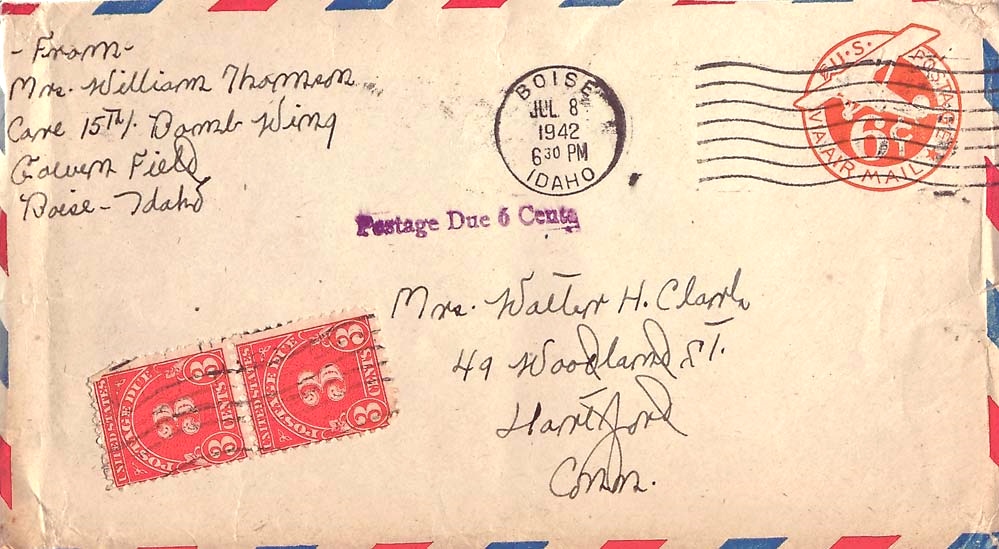 - From -
Mrs. William Thomson
Care 15TH/. Bomb Wing
Gowen Field
Boise - Idaho
BOISE
JUL 8
1942
6 30 PM
IDAHO
U.S. POSTAGE
6¢
VIA AIR MAIL
Postage Due 6 Cents
Mrs. Walter H. Clark
49 Woodland ST.
Hartford
Conn.
UNITED STATES
POSTAGE DUE
3
3
3
CENTS
UNITED STATES
POSTAGE DUE
3
3
3
CENTS